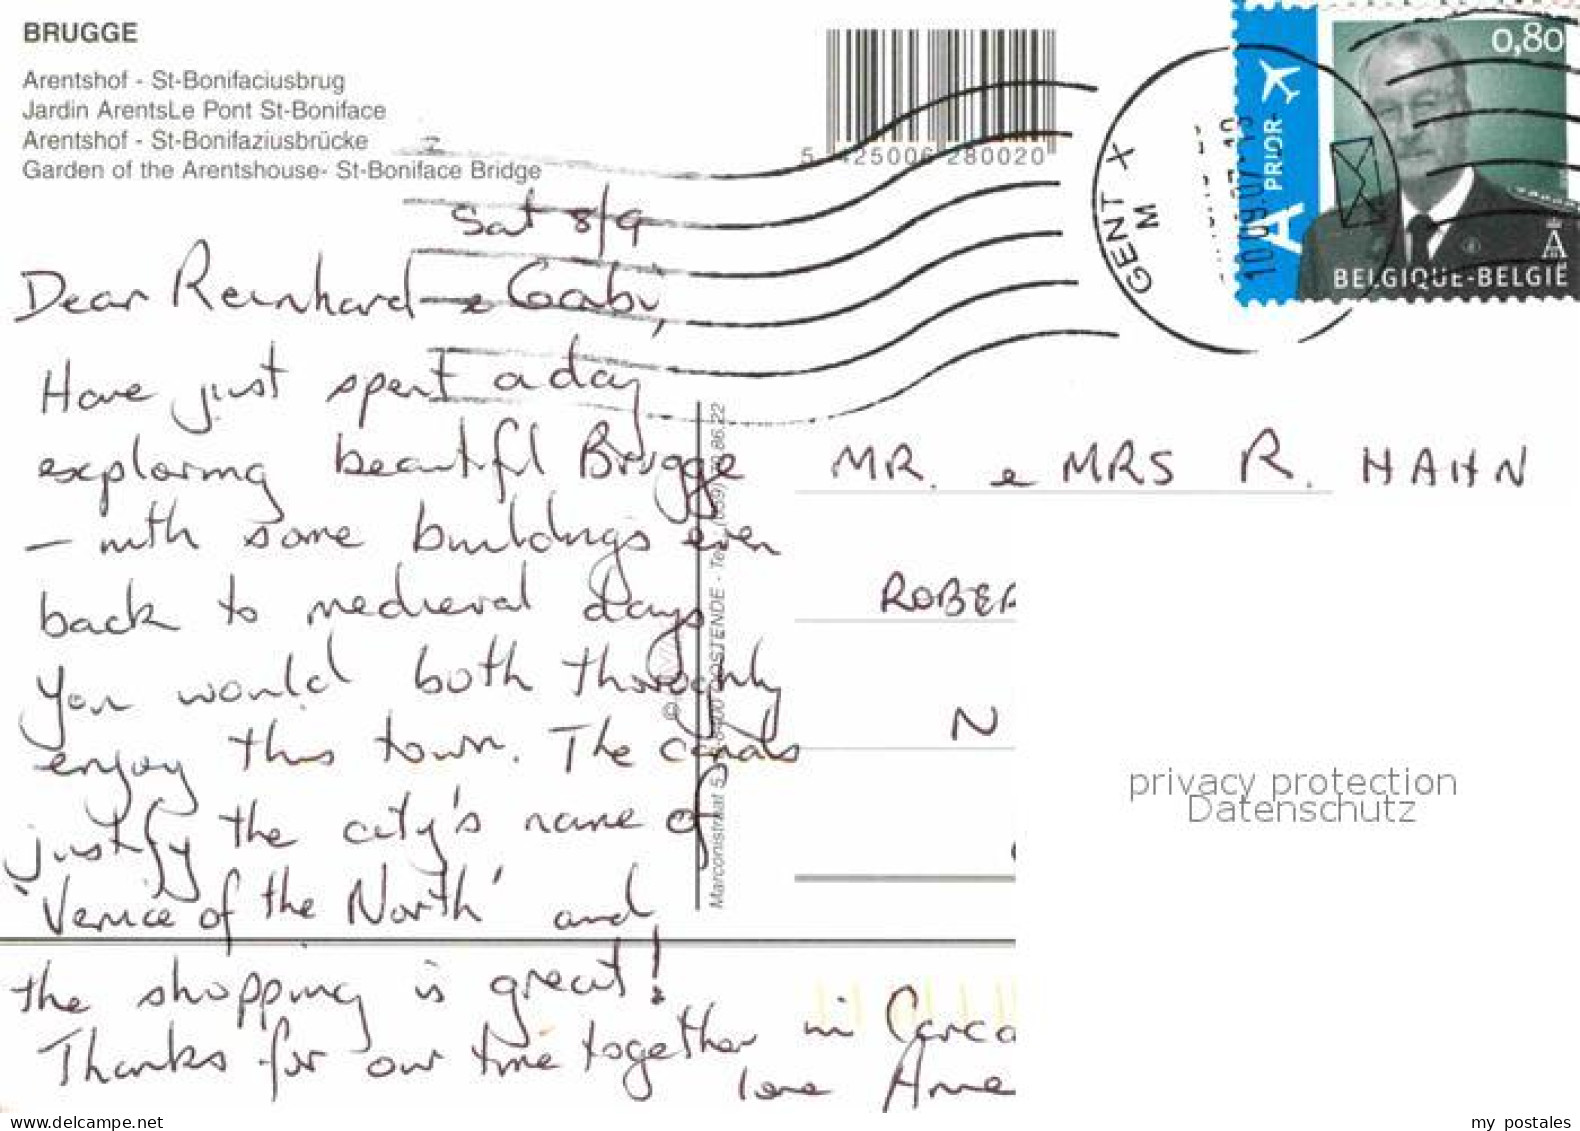 BRUGGE
Arentshof - St-Bonifaciusbrug
Jardin ArentsLe Pont St-Boniface
Arentshof - St-Bonifaziusbrücke
Garden of the Arentshouse- St-Boniface Bridge
5 425006 280020
GENT X
M
A PRIOR
0,80
BELGIQUE-BELGIË
Sat 8/9
Dear Reinhard & Gabi,
Have just spent a day
exploring beautiful Brugge
- with some buildings even
back to medieval days
You would both thoroughly
enjoy this town. The canals
justify the city's name of
'Venice of the North' and
the shopping is great!
Thanks for our time together in Carca
love Anne
Marconistraat 5 OOSTENDE - Tel. 86 22
MR. & MRS R. HAHN
ROBER
N
privacy protection
Datenschutz
www.delcampe.net
my_postales